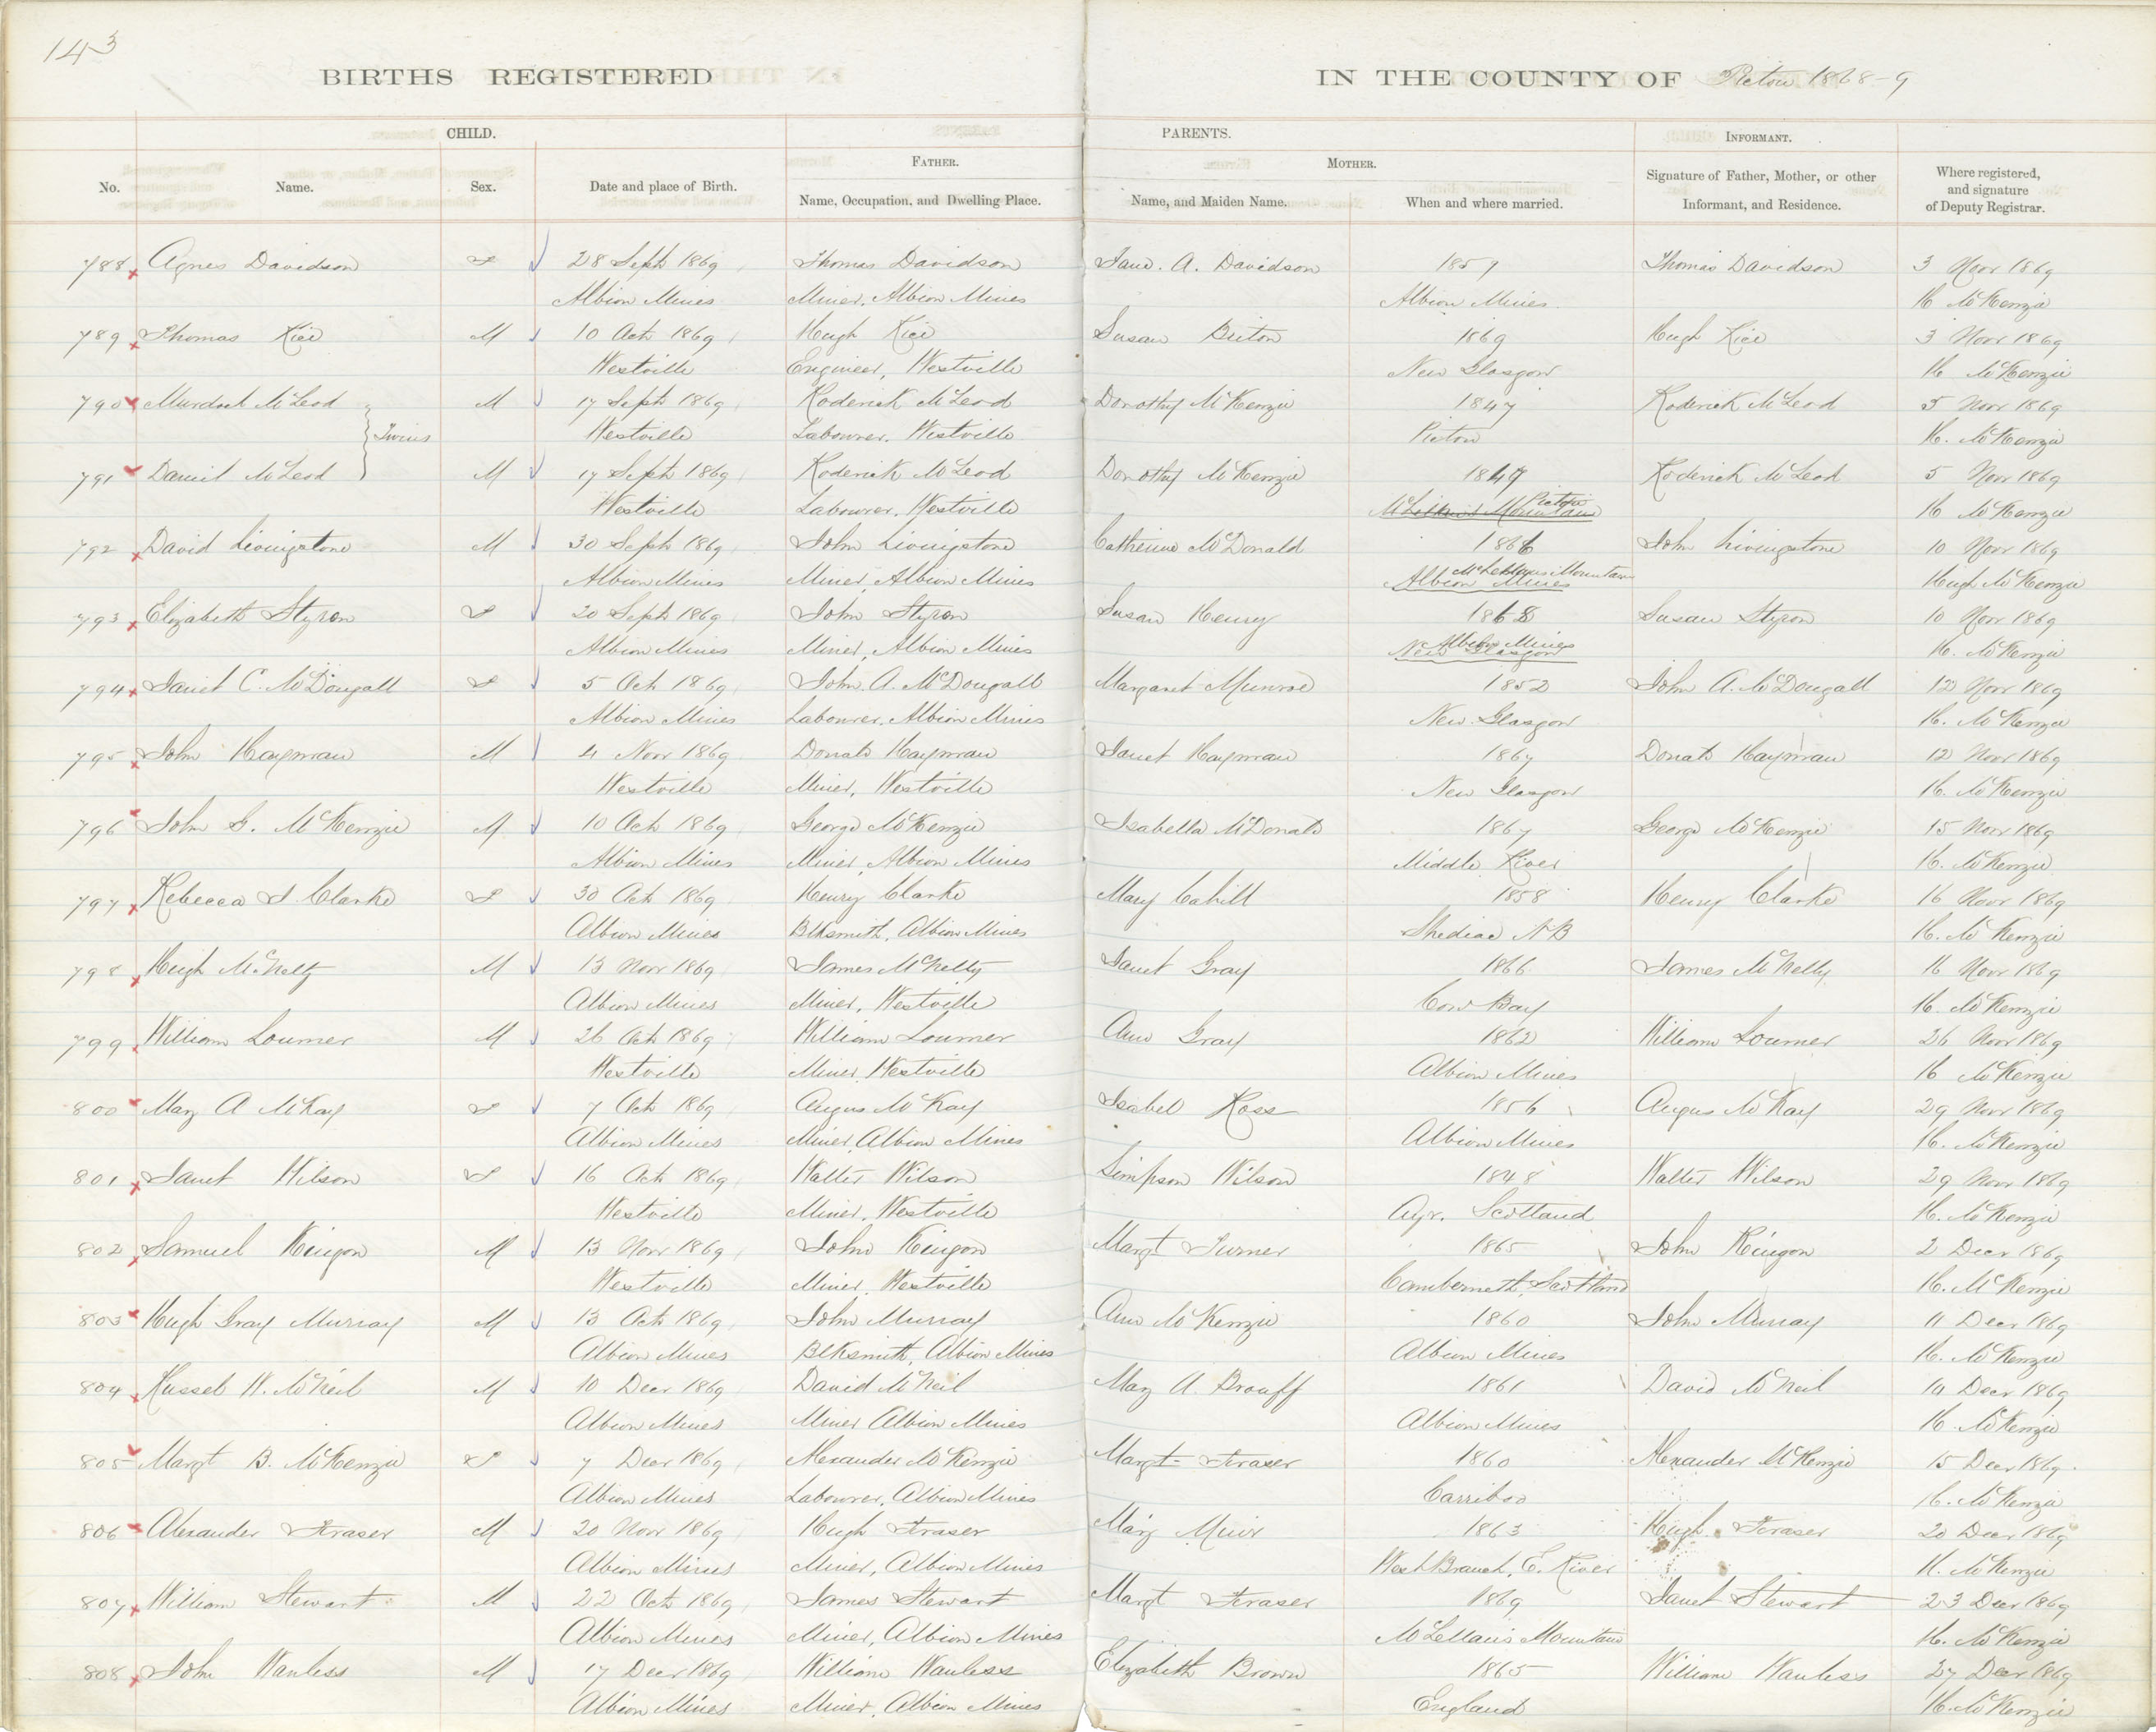 143
BIRTHS REGISTERED IN THE COUNTY OF Pictou 1868-9
CHILD. PARENTS. INFORMANT.
FATHER. MOTHER.
No. Name. Sex. Date and place of Birth. Name, Occupation, and Dwelling Place. Name, and Maiden Name. When and where married. Signature of Father, Mother, or other Informant, and Residence. Where registered, and signature of Deputy Registrar.
788 Agnes Davidson F 28 Sept 1869 Thomas Davidson Jane. A. Davidson 1859 Thomas Davidson 3 Novr 1869
Albion Mines Miner, Albion Mines Albion Mines H. McKenzie
789 Thomas Rice M 10 Oct 1869 Hugh Rice Susan 1869 Hugh Rice 3 Novr 1869
Westville Engineer, Westville New Glasgow H. McKenzie
790 Murdoch McLeod M 17 Sept 1869 Roderick McLeod Dorothy McKenzie 1847 Roderick McLeod 5 Novr 1869
Twins Westville Labourer. Westville Pictou H. McKenzie
791 Daniel McLeod M 17 Sept 1869 Roderick McLeod Dorothy McKenzie 1847 Roderick McLeod 5 Novr 1869
Westville Labourer. Westville Pictou H McKenzie
792 David Livingstone M 30 Sept 1869 John Livingstone Catherine McDonald 1866 John Livingstone 10 Novr 1869
Albion Mines Miner, Albion Mines McLellans Mountain Albion Mines Hugh McKenzie
793 Elizabeth Styron F 20 Sept 1869 John Styron Susan Henry 1868 Susan Styron 10 Novr 1869
Albion Mines Miner, Albion Mines Albion Mines New Glasgow H. McKenzie
794 Janet C. McDougall F 5 Oct 1869 John. A. McDougall Margaret Munroe 1852 John A. McDougall 12 Novr 1869
Albion Mines Labourer. Albion Mines New Glasgow H. McKenzie
795 John Hayman M 4 Novr 1869 Donald Hayman Janet Hayman 1867 Donald Hayman 12 Novr 1869
Westville Miner, Westville New Glasgow H. McKenzie
796 John G. McKenzie M 10 Oct 1869 George McKenzie Isabella McDonald 1867 George McKenzie 15 Novr 1869
Albion Mines Miner, Albion Mines Middle River H. McKenzie
797 Rebecca J. Clarke F 30 Oct 1869 Henry Clarke Mary Cahill 1858 Henry Clarke 16 Novr 1869
Albion Mines Blksmith, Albion Mines Shediac NB H. McKenzie
798 Hugh McNelty M 13 Novr 1869 James McNelty Janet Gray 1866 James McNelty 16 Novr 1869
Albion Mines Miner, Westville Cow Bay H. McKenzie
799 William Lourner M 26 Oct 1869 William Lourner Ann Gray 1862 William Lourner 26 Novr 1869
Westville Miner, Westville Albion Mines H McKenzie
800 Mary A McKay F 7 Oct 1869 Angus McKay Isabel Ross 1856 Angus McKay 29 Novr 1869
Albion Mines Miner, Albion Mines Albion Mines H. McKenzie
801 Janet Wilson F 16 Oct 1869 Walter Wilson Simpson Wilson 1848 Walter Wilson 29 Novr 1869
Westville Miner, Westville Ayr. Scotland H. McKenzie
802 Samuel Kingon M 13 Novr 1869 John Kingon Margt Turner 1865 John Kingon 2 Decr 1869
Westville Miner, Westville Camberneth, Scotland H. McKenzie
803 Hugh Gray Murray M 13 Oct 1869 John Murray Ann McKenzie 1860 John Murray 11 Decr 1869
Albion Mines Blksmith, Albion Mines Albion Mines H. McKenzie
804 Russel H. McNeil M 10 Decr 1869 David McNeil Mary A. 1861 David McNeil 14 Decr 1869
Albion Mines Miner Albion Mines Albion Mines H. McKenzie
805 Margt B. McKenzie F 7 Decr 1869 Alexander McKenzie Margt Fraser 1860 Alexander McKenzie 15 Decr 1869
Albion Mines Labourer, Albion Mines Carriboo H. McKenzie
806 Alexander Fraser M 20 Novr 1869 Hugh Fraser Mary Muir 1863 Hugh Fraser 20 Decr 1869
Albion Mines Miner, Albion Mines West Branch, E. River H. McKenzie
807 William Stewart M 22 Oct 1869 James Stewart Margt Fraser 1869 Janet Stewart 23 Decr 1869
Albion Mines Miner, Albion Mines McLellans Mountain H. McKenzie
808 John Wanless M 17 Decr 1869 William Wanless Elizabeth Brown 1865 William Wanless 27 Decr 1869
Albion Mines Miner, Albion Mines England H. McKenzie